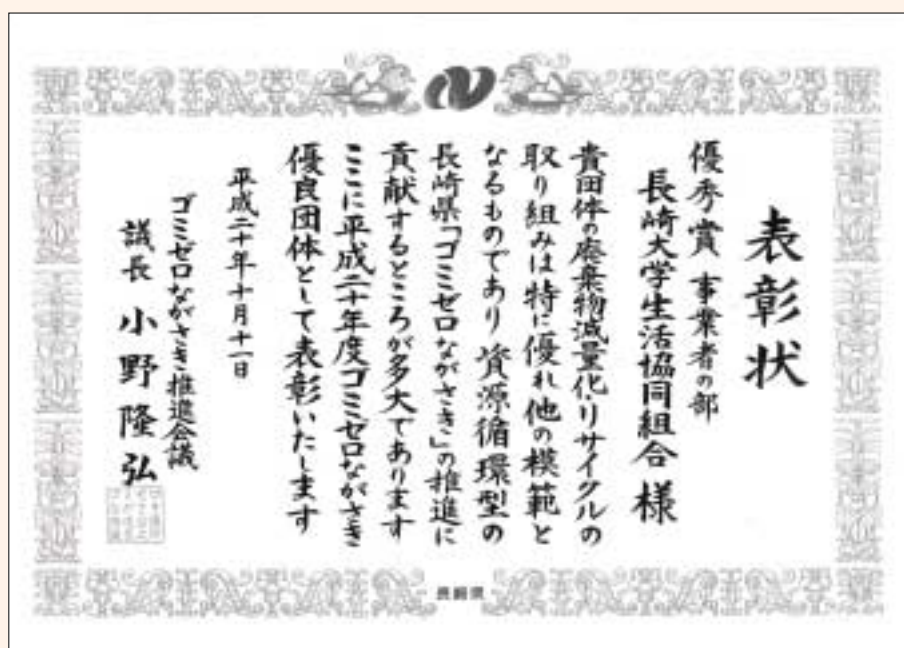 表彰状
優秀賞 事業者の部
長崎大学生活協同組合 様
貴団体の廃棄物減量化・リサイクルの
取り組みは特に優れ他の模範と
なるものであり 資源循環型の
長崎県「ゴミゼロながさき」の推進に
貢献するところが多大であります
ここに平成二十年度ゴミゼロながさき
優良団体として表彰いたします
平成二十年十月十一日
ゴミゼロながさき推進会議
議長 小野隆弘
長崎県